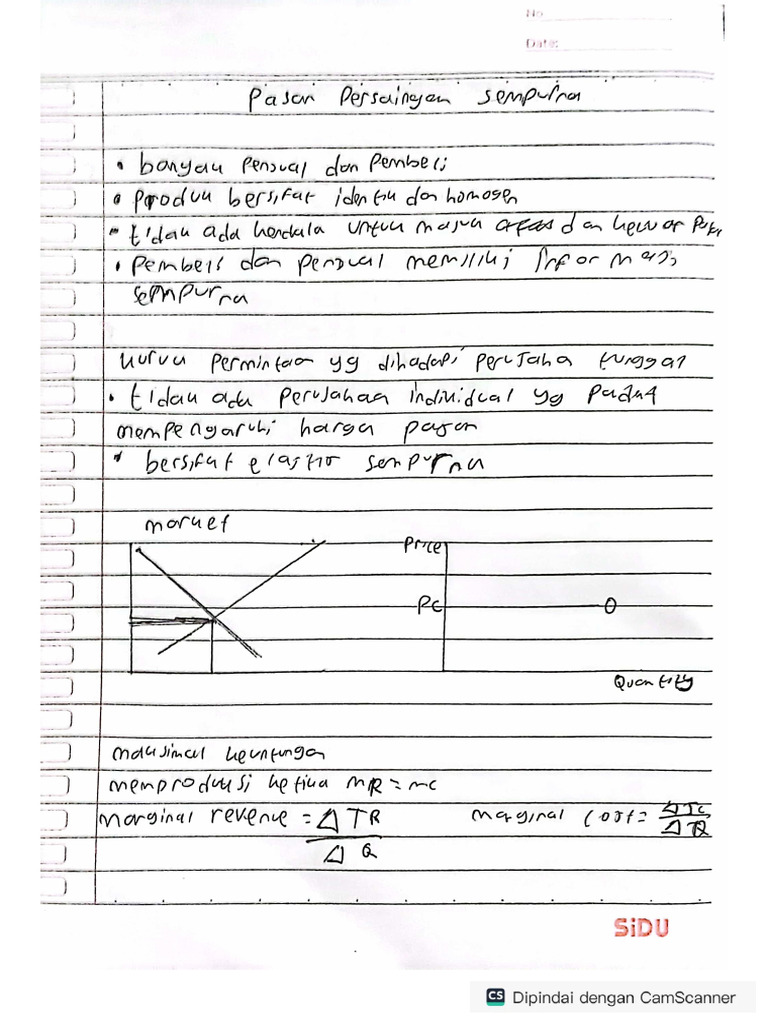 No
Date:
Pasar Persaingan sempurna
• banyak Penjual dan Pembeli
• produk bersifat identik dan homogen
- tidak ada kendala untuk masuk dan keluar
• Pembeli dan penjual memiliki Informasi
sempurna
kurva permintaan yg dihadapi perusaha tunggal
• tidak ada perusahaan individual yg
mempengaruhi harga pasar
• bersifat elastis sempurna
market
Price
Pc
D
Quantity
maksimal keuntungan
memproduksi ketika MR = MC
marginal revenue = ΔTR / ΔQ marginal cost = ΔTC / ΔQ
SiDU
CS Dipindai dengan CamScanner